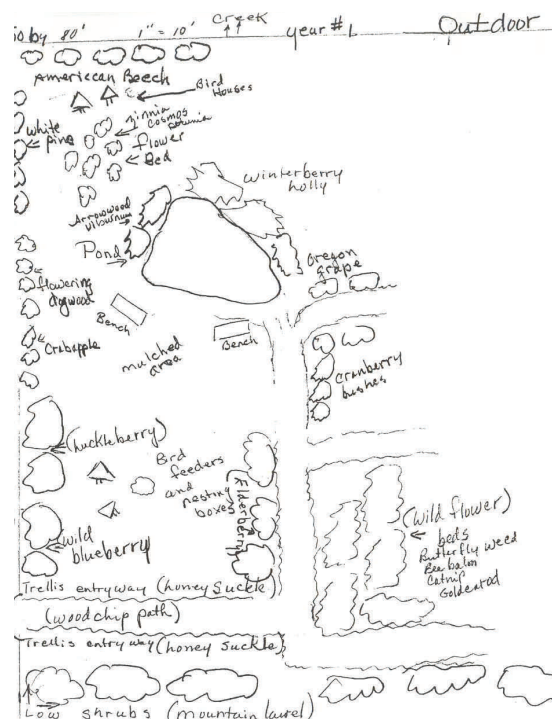 by 80' 1" = 10' Creek year #1 Outdoor
American Beech
Bird
Houses
Zinnia
Cosmos
flower
Bed
white
pine
winterberry
holly
Arrowwood
Viburnum
Pond
Oregon
grape
flowering
dogwood
Bench
Bench
Crabapple
mulched
area
Cranberry
bushes
(huckleberry)
Bird
feeders
and
nesting
boxes
Elderberry
(wild flower)
beds
Butterfly weed
Bee balm
Catnip
Goldenrod
wild
blueberry
Trellis entryway (honey suckle)
(wood chip path)
Trellis entryway (honey suckle)
Low shrubs (mountain laurel)